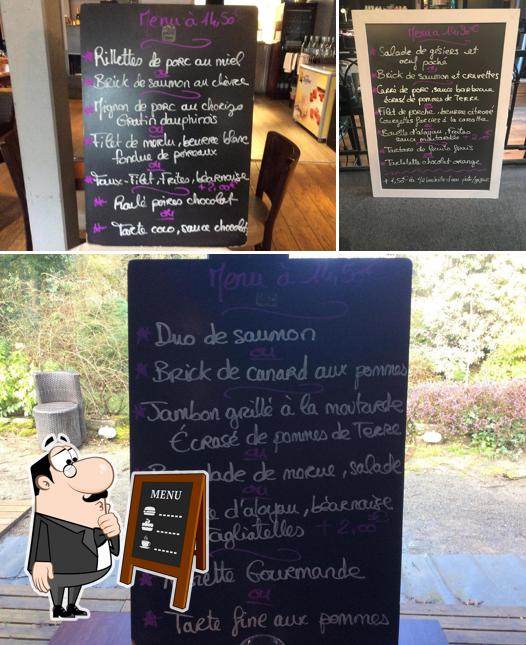 Menu à 14,50€
Rillettes de porc au miel
ou
Brick de saumon au chèvre
Mignon de porc au chorizo
Gratin dauphinois
ou
Filet de morue, beurre blanc
fondue de poireaux
ou
Faux-Filet, frites, béarnaise
+2,00€
Roulé poires chocolat
ou
Tarte coco, sauce chocolat
Menu à 14,50€
Salade de gésiers et
oeuf poché
ou
Brick de saumon et crevettes
Carré de porc, sauce barbecue
écrasé de pommes de Terre
ou
Filet de perche, beurre citronné
Courgettes farcies à la carotte
ou
d'aloyau, frites
sauce moutarde + 2,
Tartare de fruits frais
ou
Tartelette chocolat orange
Menu à 14,50€
Duo de saumon
ou
Brick de canard aux pommes
Jambon grillé à la moutarde
Écrasé de pommes de Terre
ou
lade de morue, salade
ou
d'aloyau, béarnaise
Tagliatelles + 2,00€
Gourmande
ou
Tarte fine aux pommes
MENU